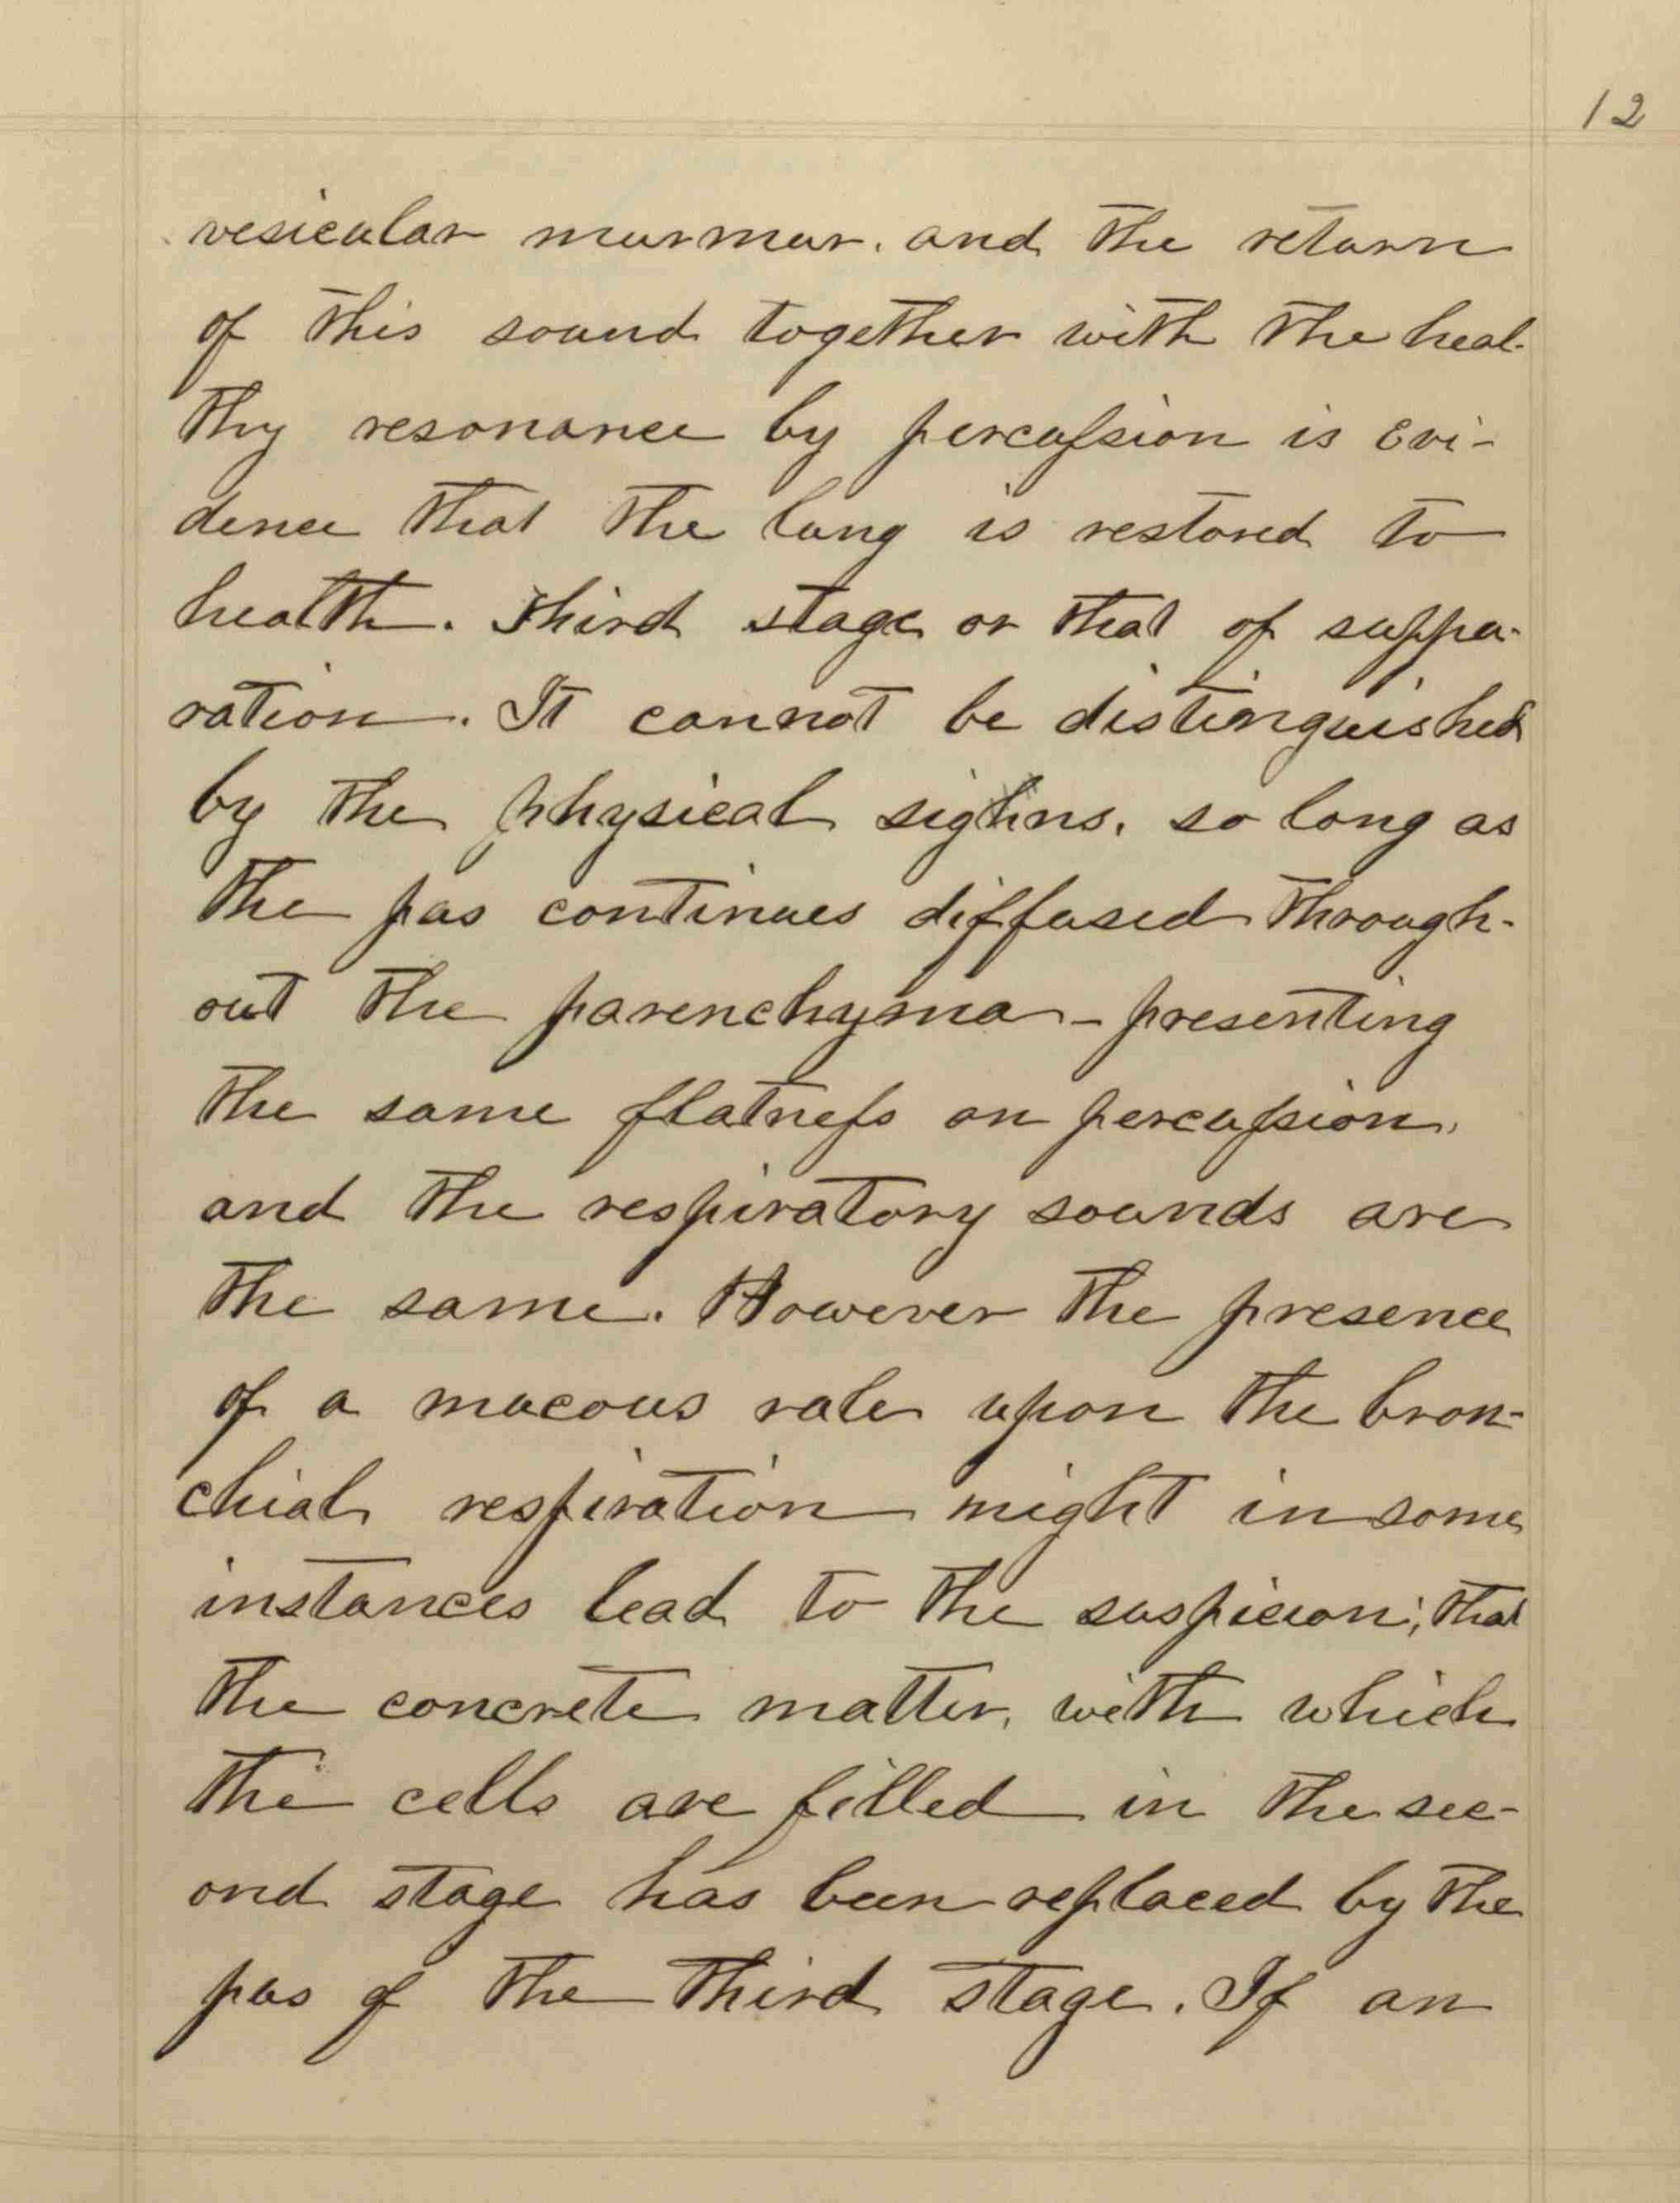 12
vesicular murmur. and the return
of this sound together with the heal-
thy resonance by percussion is evi-
dence that the lung is restored to
health. Third stage or that of suppu-
ration. It cannot be distinguished
by the physical sighns, so long as
the pus continues diffused through-
out the parenchyma - presenting
the same flatness on percussion,
and the respiratory sounds are
the same. However the presence
of a mucous rale upon the bron-
chial respiration might in some
instances lead to the suspicion; that
the concrete matter, with which
the cells are filled in the sec-
ond stage has been replaced by the
pus of the third stage. If an